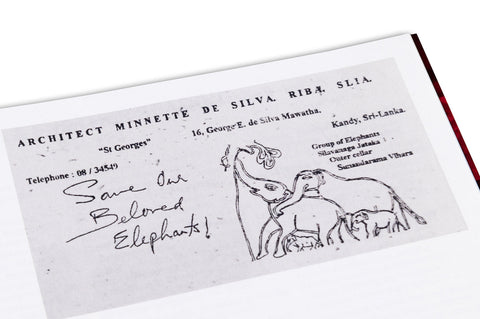 ARCHITECT MINNETTE DE SILVA. RIBA. SLIA.
"St Georges"
16, George E. de Silva Mawatha,
Kandy, Sri-Lanka.
Telephone : 08 / 34549
Group of Elephants
Silavanaga Jataka
Outer cellar
Sunandarama Vihara
Save Our
Beloved
Elephants!